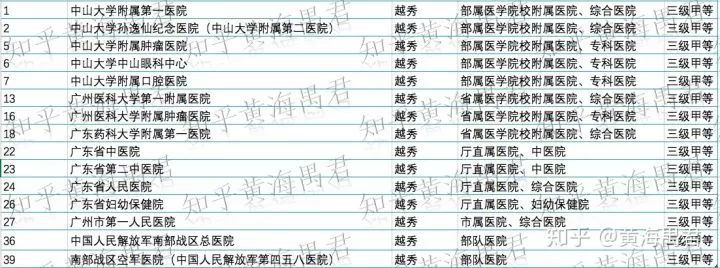 1 中山大学附属第一医院 越秀 部属医学院校附属医院、综合医院 三级甲等
2 中山大学孙逸仙纪念医院（中山大学附属第二医院） 越秀 部属医学院校附属医院、综合医院 三级甲等
5 中山大学附属肿瘤医院 越秀 部属医学院校附属医院、专科医院 三级甲等
6 中山大学中山眼科中心 越秀 部属医学院校附属医院、专科医院 三级甲等
7 中山大学附属口腔医院 越秀 部属医学院校附属医院、专科医院 三级甲等
13 广州医科大学第一附属医院 越秀 省属医学院校附属医院、综合医院 三级甲等
16 广州医科大学附属肿瘤医院 越秀 省属医学院校附属医院、专科医院 三级甲等
18 广东药科大学附属第一医院 越秀 省属医学院校附属医院、综合医院 三级甲等
22 广东省中医院 越秀 厅直属医院、中医院 三级甲等
23 广东省第二中医院 越秀 厅直属医院、中医院 三级甲等
24 广东省人民医院 越秀 厅直属医院、综合医院 三级甲等
26 广东省妇幼保健院 越秀 厅直属医院、妇幼保健院 三级甲等
27 广州市第一人民医院 越秀 市属医院、综合医院 三级甲等
36 中国人民解放军南部战区总医院 越秀 部队医院 三级甲等
39 南部战区空军医院（中国人民解放军第四五八医院） 越秀 部队医院 三级甲等
知乎 @黄海禺君
知乎黄海禺君